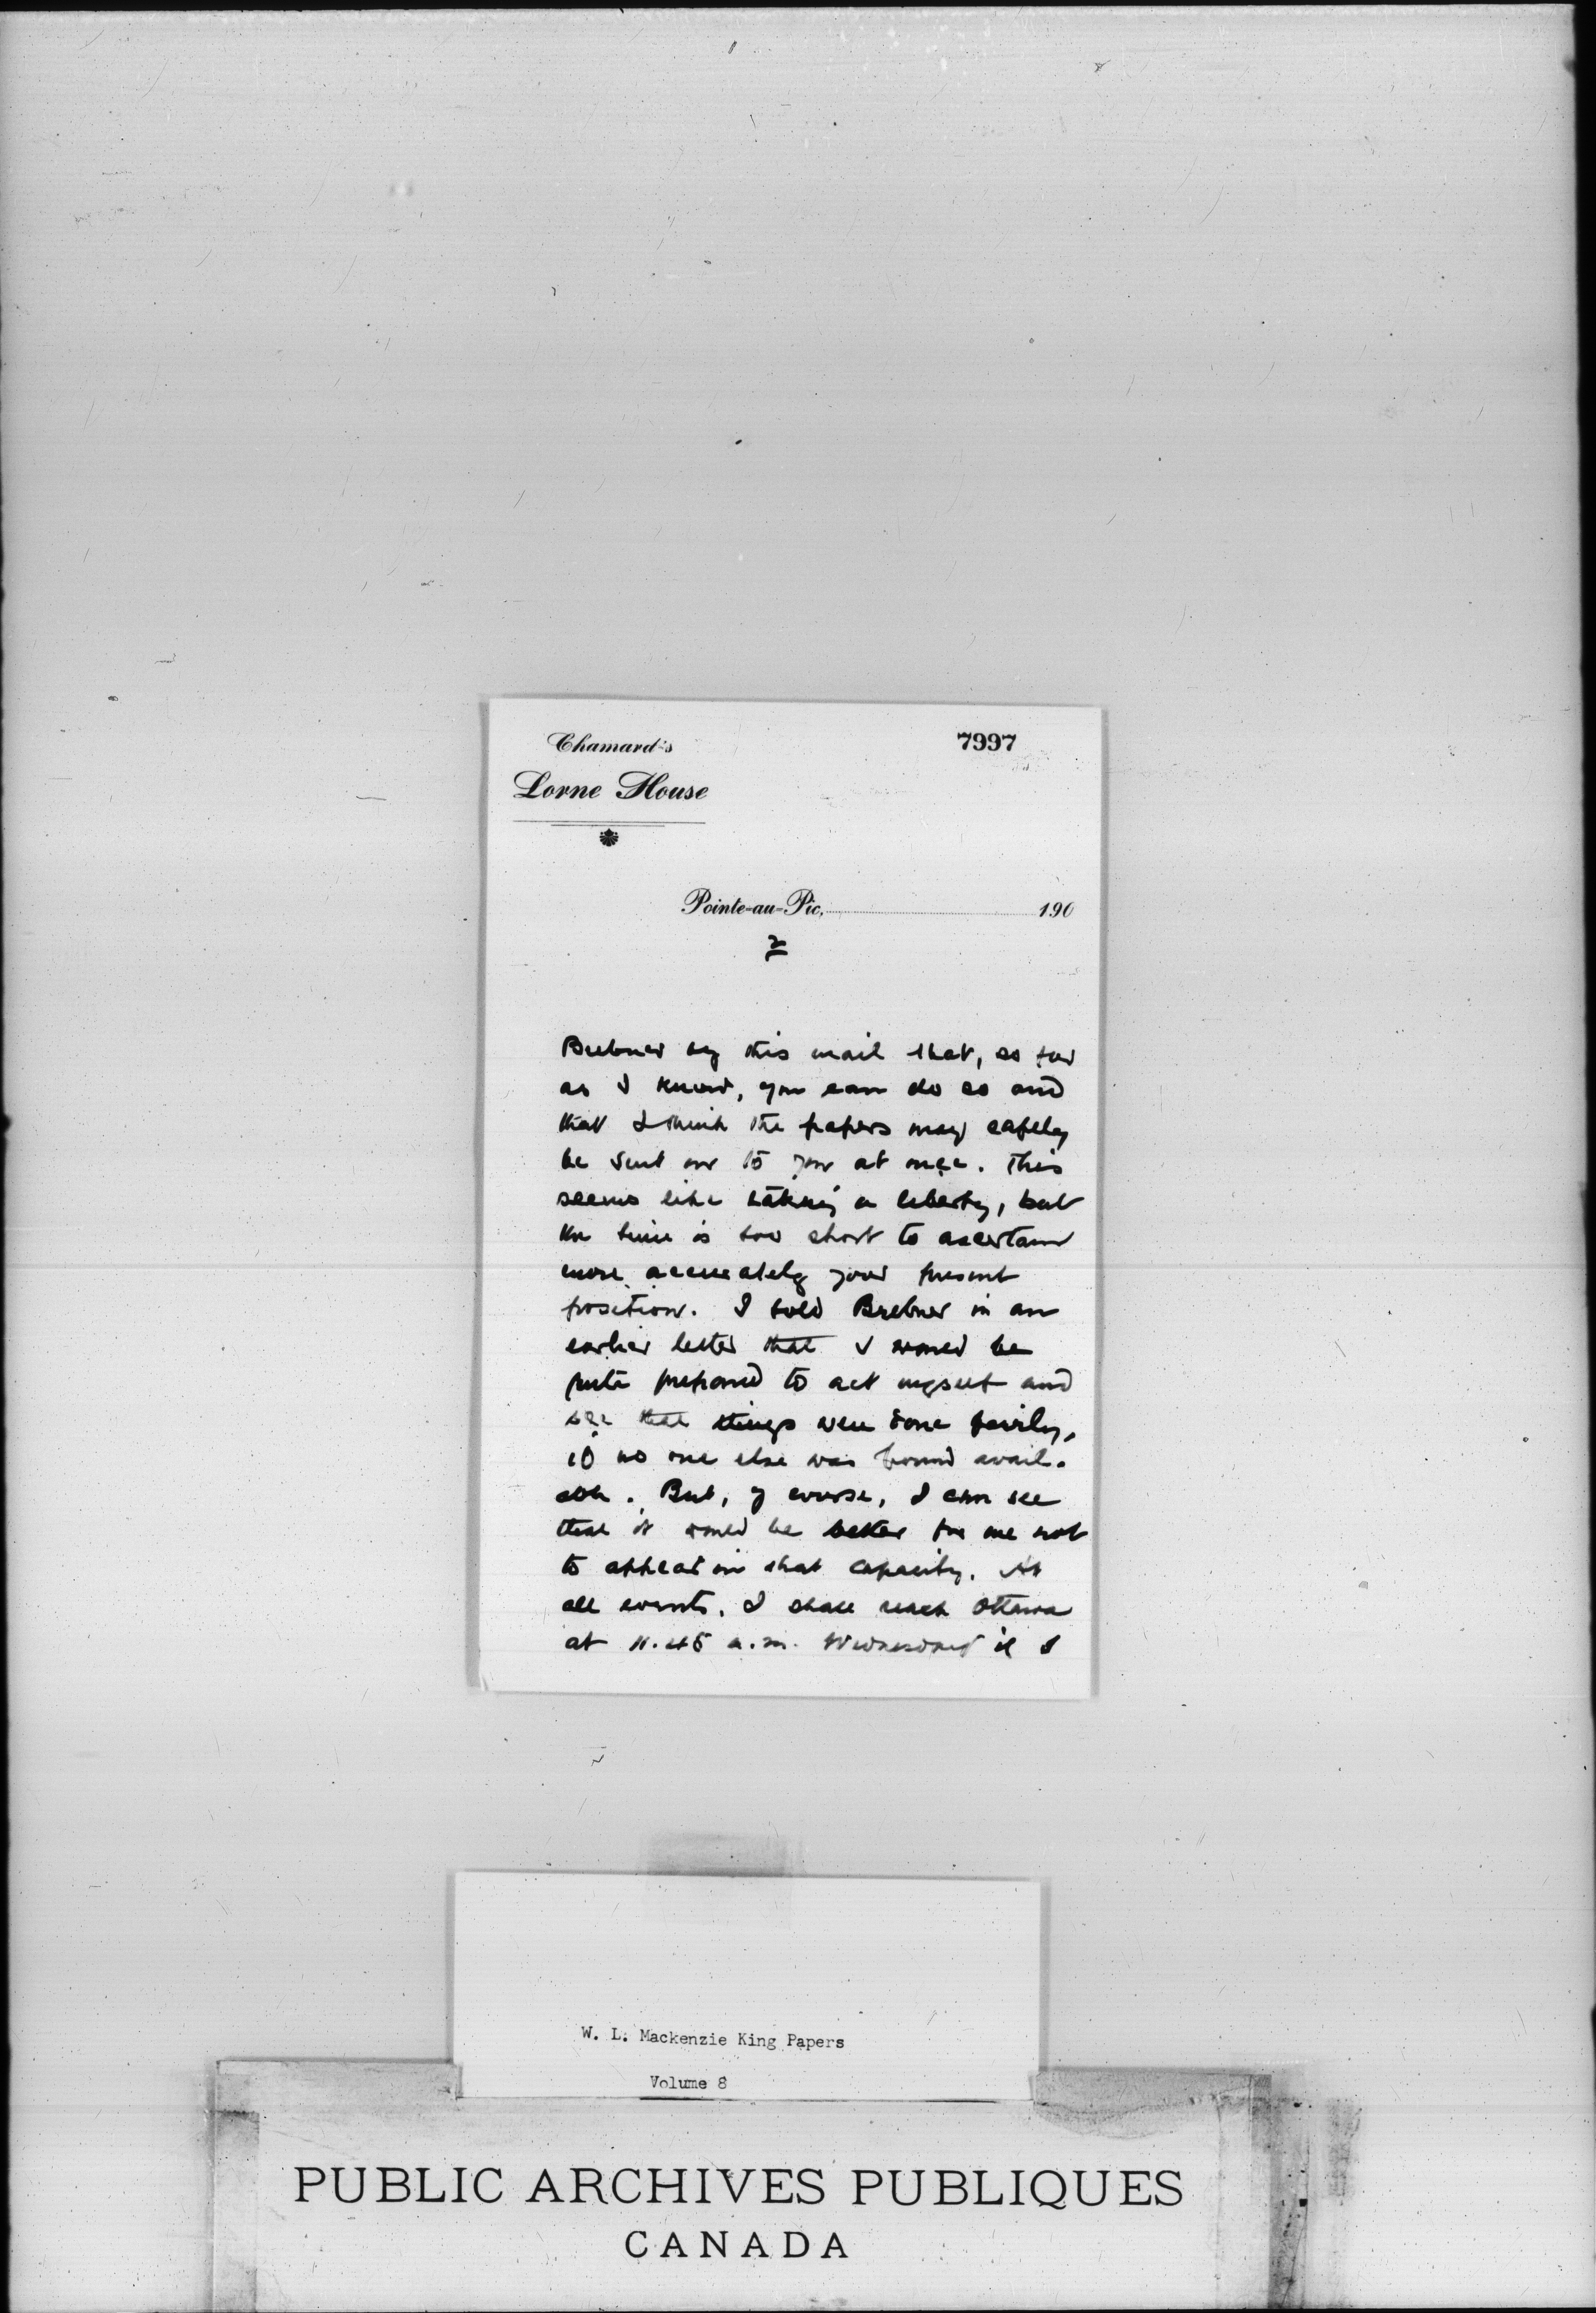 Chamard's
7997
Lorne House
Pointe-au-Pic, 190
2
Brebner by this mail that, as far
as I know, you can do so and
that I think the papers may safely
be sent on to you at once. This
seems like taking a liberty, but
the time is too short to ascertain
more accurately your present
position. I told Brebner in an
earlier letter that I would be
quite prepared to act myself and
see that things were done fairly,
if no one else was found avail-
able. But, of course, I can see
that it would be better for me not
to appear in that capacity. At
all events, I shall reach Ottawa
at 11.45 a.m. Wednesday if I
W. L. Mackenzie King Papers
Volume 8
PUBLIC ARCHIVES PUBLIQUES
CANADA